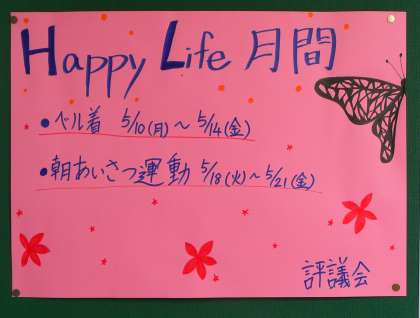 Happy Life 月間
●ベル着 5/10(月)～5/14(金)
●朝あいさつ運動 5/18(火)～5/21(金)
評議会